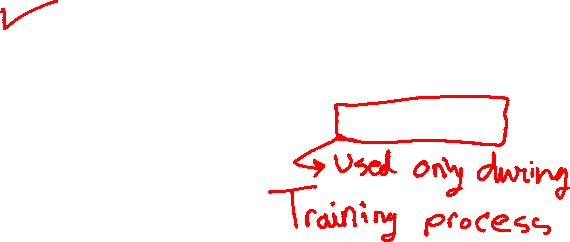 Used only during
Training process